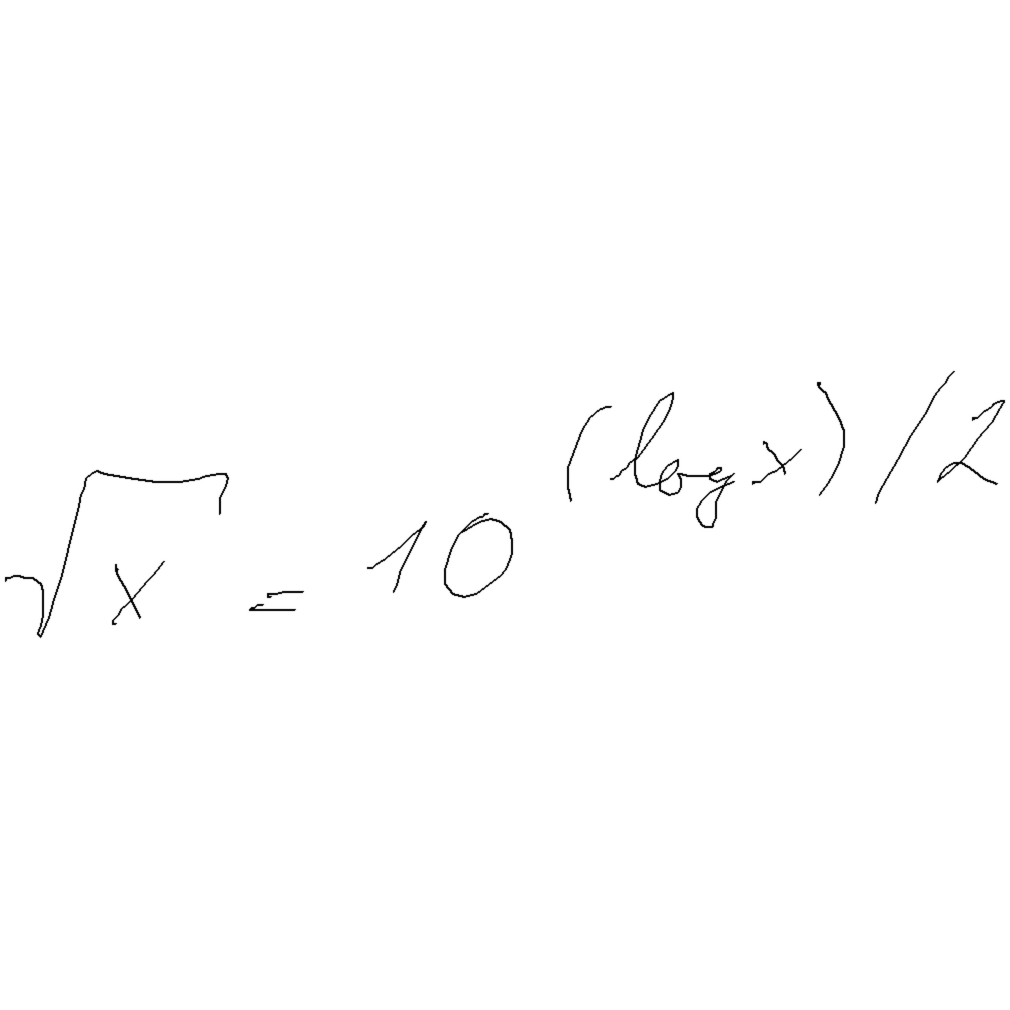 √x = 10^{(log x)/2}